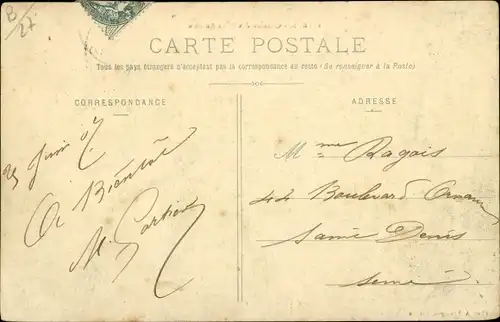 B/27
CARTE POSTALE
Tous les pays étrangers n'acceptent pas la correspondance au recto (Se renseigner à la Poste)
CORRESPONDANCE
ADRESSE
Juin 07
A Bientôt
M.
Mme Ragois
44 Boulevard Ornano
Saint Denis
Seine